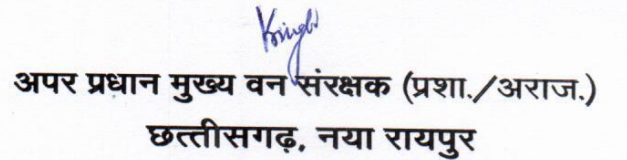 अपर प्रधान मुख्य वन संरक्षक (प्रशा./अराज.)
छत्तीसगढ़, नया रायपुर